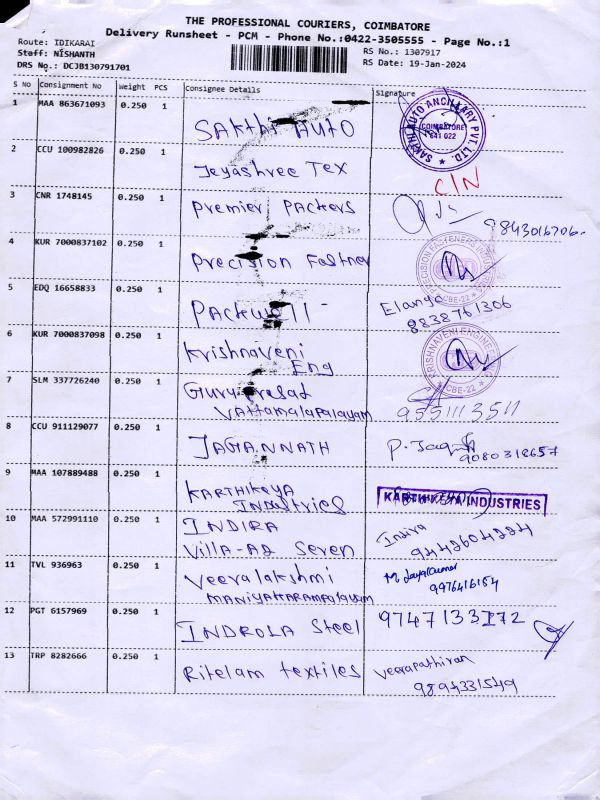 THE PROFESSIONAL COURIERS, COIMBATORE
Delivery Runsheet - PCM - Phone No.:0422-3505555 - Page No.:1
Route: IDIKARAI
RS No.: 1307917
Staff: NISHANTH
RS Date: 19-Jan-2024
DRS No.: DCJB130791701
S No Consignment No Weight PCS Consignee Details Signature
1 MAA 863671093 0.250 1 SAKTHI AUTO
SAKTHI AUTO ANCILLARY PVT. LTD. COIMBATORE 641 022
2 CCU 100982826 0.250 1 Jeyashree Tex C/N
3 CNR 1748145 0.250 1 Premier PACKers 9843016706
4 KUR 7000837102 0.250 1 Precision Fastner
PRECISION FASTENERS CBE-22
5 EDQ 16658833 0.250 1 PACKwell Elango
8838761306
6 KUR 7000837098 0.250 1 Krishnaveni
Eng
KRISHNAVENI ENGINEERS CBE-22
7 SLM 337726240 0.250 1 Guruprasat
VATTAMALAPALAYAM
8 CCU 911129077 0.250 1 JAGANNATH
9080318657
9 MAA 107889488 0.250 1 KARTHIKEYA
INDUStries
KARTHIKEYA INDUSTRIES
10 MAA 572991110 0.250 1 INDIRA
Villa-A2 Seven
Indira
11 TVL 936963 0.250 1 Veeralakshmi
MANIYAKARAMPALAYAM
M. Jayakumar
9976416154
12 PGT 6157969 0.250 1 INDROLA Steel
13 TRP 8282666 0.250 1 Ritelam textiles Veerapathiran
9894331549